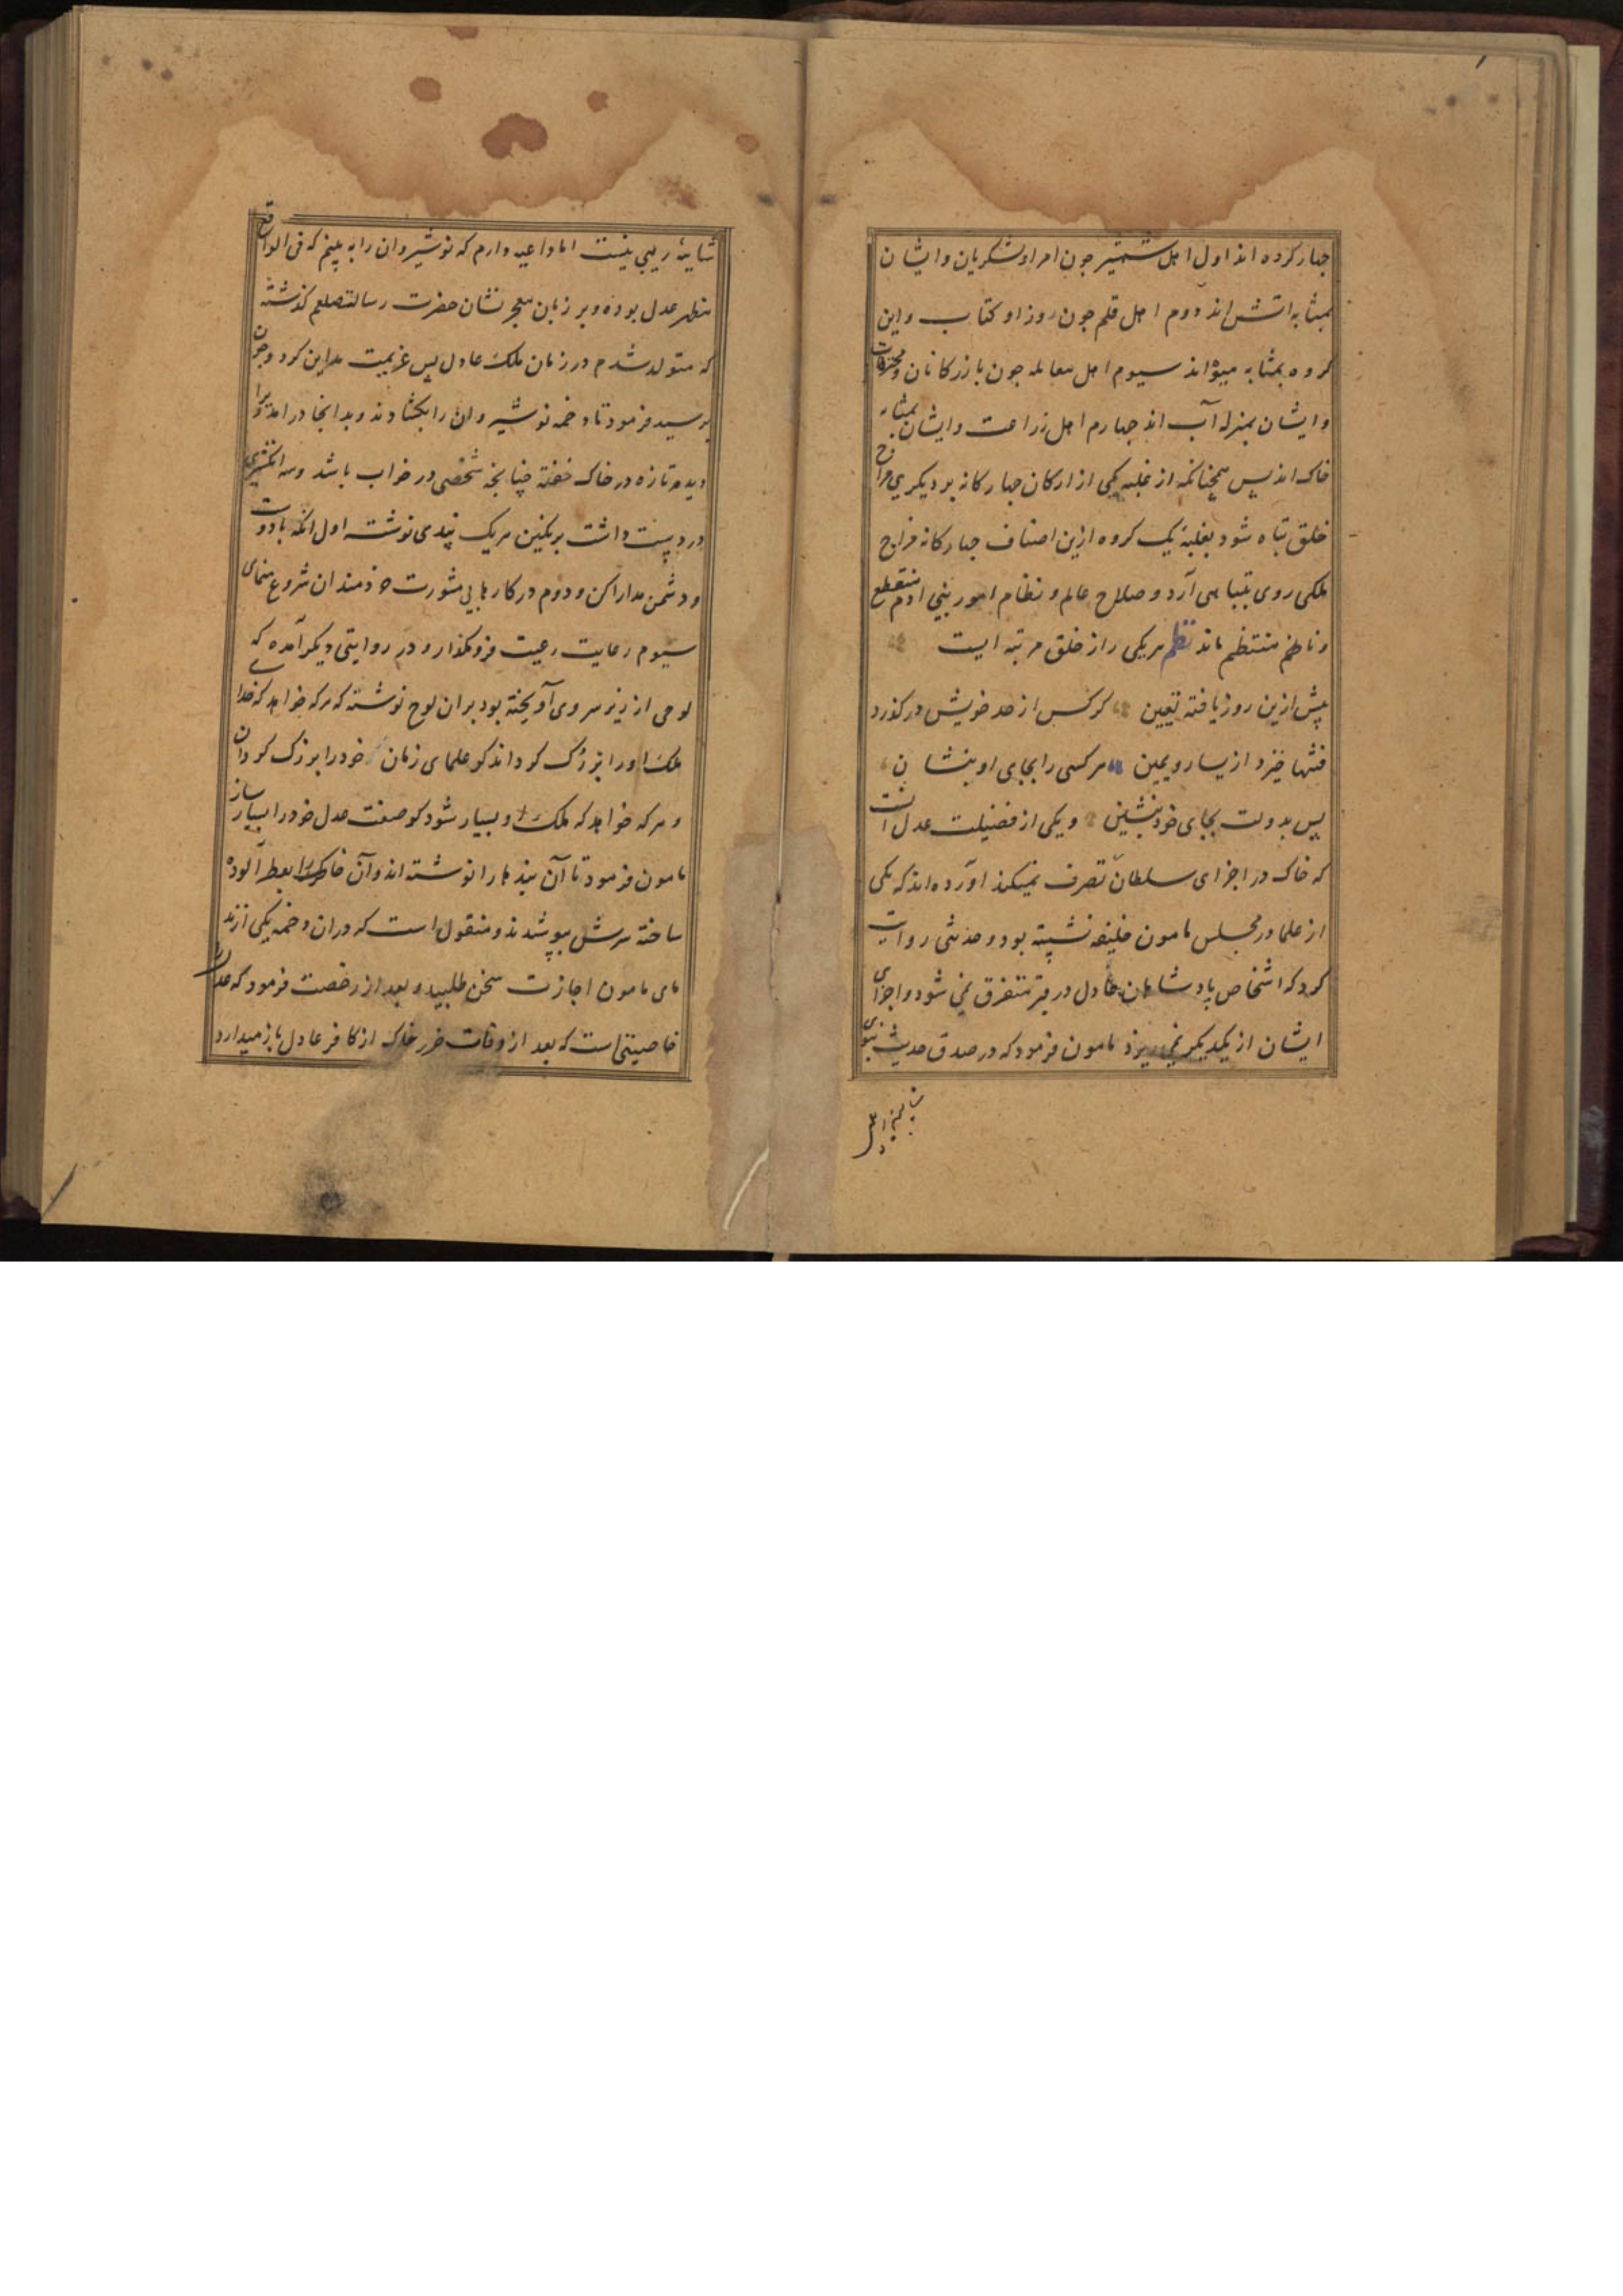 چهار کرده اند اول اهل شمشیر جون امرا و لشکریان و ایشان
بمثابه اتش اند دوم اهل قلم جون وزرا و کتاب و این
کروه بمثابه هوااند سیوم اهل معامله جون بازرکانان و محترفات
و ایشان بمنزله آب اند جهارم اهل زراعت و ایشان بمثابه
خاک اند پس همجنانکه از غلبه یکی از ارکان جهارکانه بر دیکری مزاج
خلق تباه شود بغلبه یک کروه ازین اصناف جهارکانه مزاج
ملکی روی بتباهی آرد و صلاح عالم و نظام امور بنی ادم منقطع
و نامنتظم ماند نظم هر یکی را از خلق مرتبه ایست
پیش ازین روز یافته تعیین کر کس از حد خویش درکذرد
فتنها خیزد از یسار و یمین هر کسی را بجای او بنشان
پس بدولت بجای خود بنشین و یکی از فضیلت عدل انست
که خاک در اجزای سلطان تصرف نمیکند اورده اند که یکی
از علما در مجلس مامون خلیفه نشسته بود و حدیثی روایت
کرد که اشخاص پادشاهان عادل در قبر متفرق نمی شود و اجزای
ایشان از یکدیکر نمی ریزد مامون فرمود که در صدق حدیث نبوی
شایبهٔ ریبی نیست اما داعیه دارم که نوشیروان را به بینم که فی الواقع
مظهر عدل بوده و بر زبان معجز نشان حضرت رسالت صلعم کذشته
که متولد شدم در زمان ملک عادل پس عزیمت مداین کرد و جون
برسید فرمود تا دخمه نوشیروان را بکشادند و بدانجا درامد و او را
دید تازه در خاک خفته جنانجه شخصی در خواب باشد و سه انکشتری
در دست داشت بر نکین هر یک پندی نوشته اول انکه با دوست
و دشمن مدارا کن و دوم در کارها بی مشورت خردمندان شروع منمای
سیوم رعایت رعیت فرو مکذار و در روایتی دیکر آمده که
لوحی از زیر سر وی آویخته بود بران لوح نوشته که هر که خواهد که خدا
ملک او را بزرک کرداند کو علمای زمان خود را بزرک کردان
و هر که خواهد که ملک او بسیار شود کو صفت عدل خود را بسیار ساز
مامون فرمود تا آن پندها را نوشته اند و آن خاک را بعطر آلوده
ساخته سرش بپوشیدند و منقولست که دران دخمه یکی از ند
مای مامون اجازت سخن طلبید و بعد از رخصت فرمود که عدل را
خاصیتی است که بعد از وفات ضرر خاک از کافر عادل باز میدارد